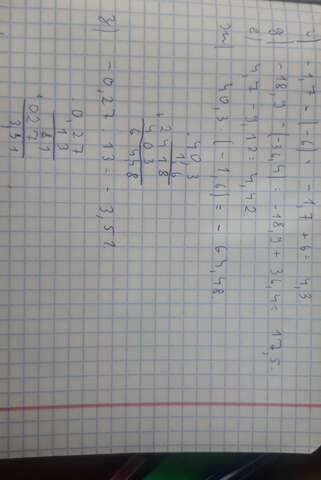 г) -1,7 - (-6) = -1,7 + 6 = 4,3
д) -18,9 - (-36,4) = -18,9 + 36,4 = 17,5.
е) 4,7 - 9,12 = 4,42
ж) 40,3 · (-1,6) = - 64,48
40,3
1,6
2418
403
6448
з) -0,27 · 13 = -3,51
0,27
13
81
027
3,51